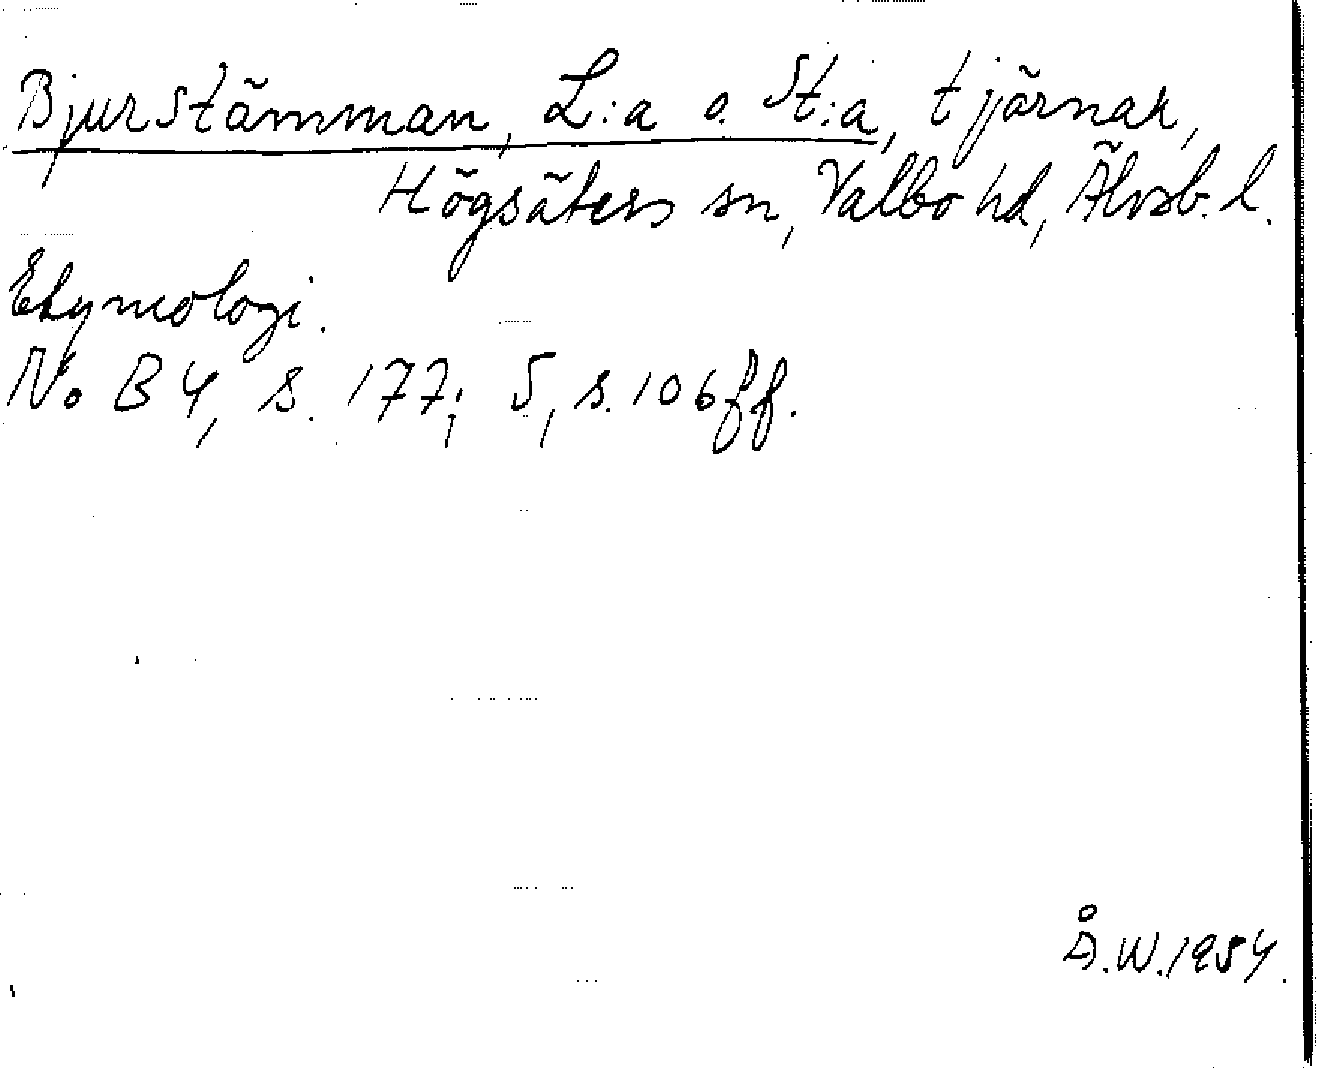 Bjurstämman, L:a o. St:a, tjärnar,
Högsäters sn, Valbo hd, Älvsb. l.
Etymologi.
NoB 4, s. 177; 5, s. 106 ff.
Å.W. 1954.